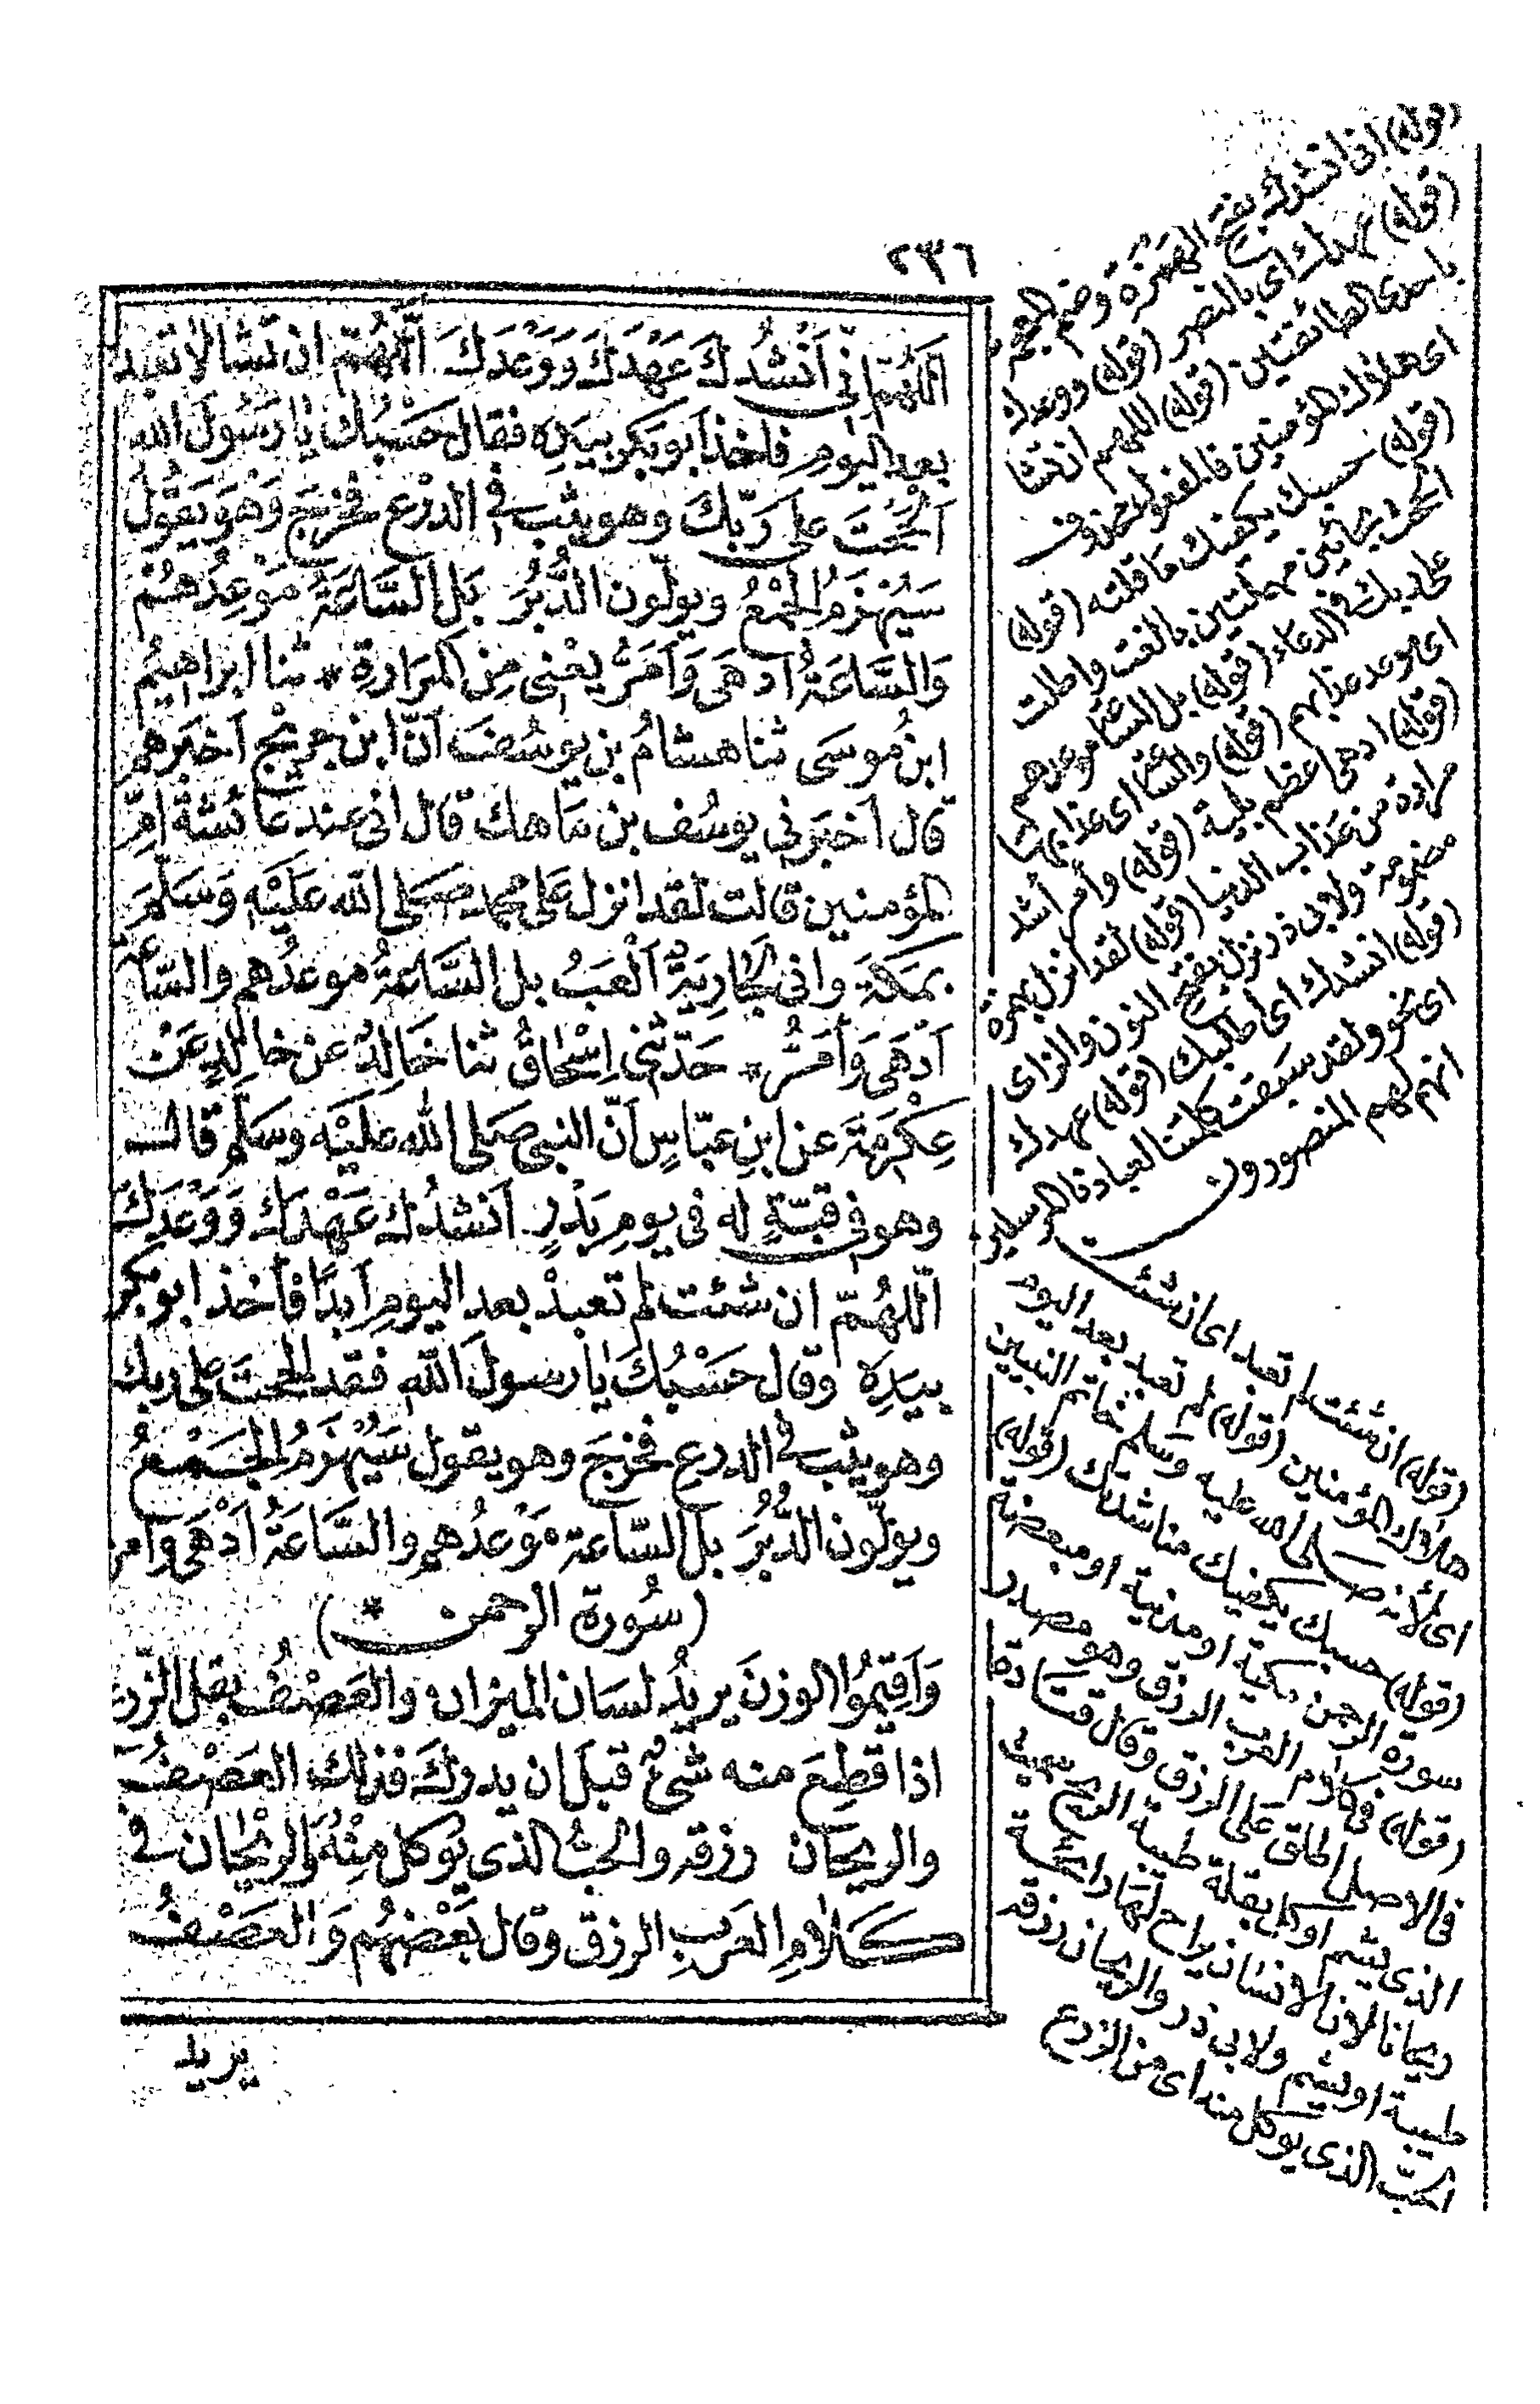 ٢٣٦
اَللّٰهُمَّ اِنّي اَنْشُدُكَ عَهْدَكَ وَوَعْدَكَ اَللّٰهُمَّ ان تَشَا لا تعبد
بعد اليومِ فاخذ اَبو بَكرٍ بيَدِه فقال حَسْبُك يا رَسُولَ الله
اَلْحَحْتَ على رَبِّكَ وهو يثب في الدرْع فخرَجَ وَهْوَ يَقولُ
سَيُهْزَمُ الجَمْعُ ويولّون الدُّبُرَ بَل السَّاعَةُ مَوْعِدُهُمْ
وَالسَّاعَةُ اَدهَى وَاَمَرُّ يعْنى مِن المَرَارةِ * ثنا ابراهيمُ
ابنُ موسَى ثنا هشامُ بن يوسُفَ اَنّ ابن جريْج اَخبَرهم
قال اَخبَرني يوسُف بن ماهك قال انى عند عائشةَ امّ
المؤمنين قالت لقد انزل عَلى محمد صَلى الله عَلَيْهِ وَسَلّمَ
بمَكةَ وانى لجَارِيَةٌ اَلْعَبُ بل السَّاعَةُ موعدُهم والسَّاعة
اَدْهَى وَاَمَرُّ * حَدّثنى اِسْحاقُ ثنا خَالدٌ عن خالدٍ عَنْ
عِكْرِمَةَ عن ابنِ عبّاسٍ اَنّ النبى صَلى الله عليْه وسَلم قال
وهو فى قبّةٍ له فى يومِ بَدْرٍ اَنشدُك عَهْدَك وَوَعْدَكَ
اَللهُمّ ان شئت لم تعبدْ بعد اليومِ اَبدًا فاَخذ ابو بكرٍ
بيَدِهِ وقال حَسْبُكَ يا رسولَ الله فقد اَلححتَ على ربك
وهو يثب في الدرعِ فخرَجَ وهو يقول سَيُهْزَمُ الجَمْعُ
ويولّون الدُّبُرَ بل السّاعة مَوْعدُهم والسَّاعَةُ اَدْهَى وَاَمر
(سُورة الرحمن *)
وَاَقِيمُوا الوزنَ يريدُ لسَان الميزان والعَصْفُ بقل الزّرع
اذا قطِعَ منه شىءٌ قبلَ ان يدرك فذلك العَصْفُ
والريحَان رزقه والحبُّ الذى يوكل مِنْهُ وَالريْحان في
كَلامِ العَرَبِ الرزق وقال بَعْضهُم وَالعَصْفُ
يريد
(قوله) انى انشدك بفتح الهمزة وضم المعجمة
(قوله) عهدك اى بالنصر (قوله) ووعدك
باحدى الطائفتين (قوله) اللهم ان تشا
اى هلاك المؤمنين فالمفعول محذوف
(قوله) حسبك يكفيك ما قلته (قوله)
الححت بحائين مهملتين بالغت واطلت
على ربك فى الدعاء (قوله) بل الساعة موعدهم
اى موعد عذابهم (قوله) والساعة اى عذابها
(قوله) ادهى اعظم بلية (قوله) وأمر أشد
مرارة من عذاب الدنيا (قوله) لقد انزل بهمزة
مضمومة ولابى ذر نزل بفتح النون والزاى
(قوله) انشدك اى اطالبك (قوله) عهدك
اى نحو ولقد سبقت كلمتنا لعبادنا المرسلين
انهم لهم المنصورون
(قوله) ان شئت لم تعبد اى ان شئت
هلاك المؤمنين (قوله) لم تعبد بعد اليوم
اى لأنه صلى الله عليه وسلم خاتم النبيين
(قوله) حسبك يكفيك مناشدتك (قوله)
سورة الرحمن مكية او مدنية او مبعضة
(قوله) فى كلام العرب الرزق وهو مصدر
فى الاصل اطلق على الرزق وقال قتادة
الذى يشم او كل بقلة طيبة الريح سميت
ريحانا لان الانسان يراح لها رائحة
طيبة او يشم ولابى ذر والريحان رزقه
الحبّ الذى يوكل منه اى من الزرع